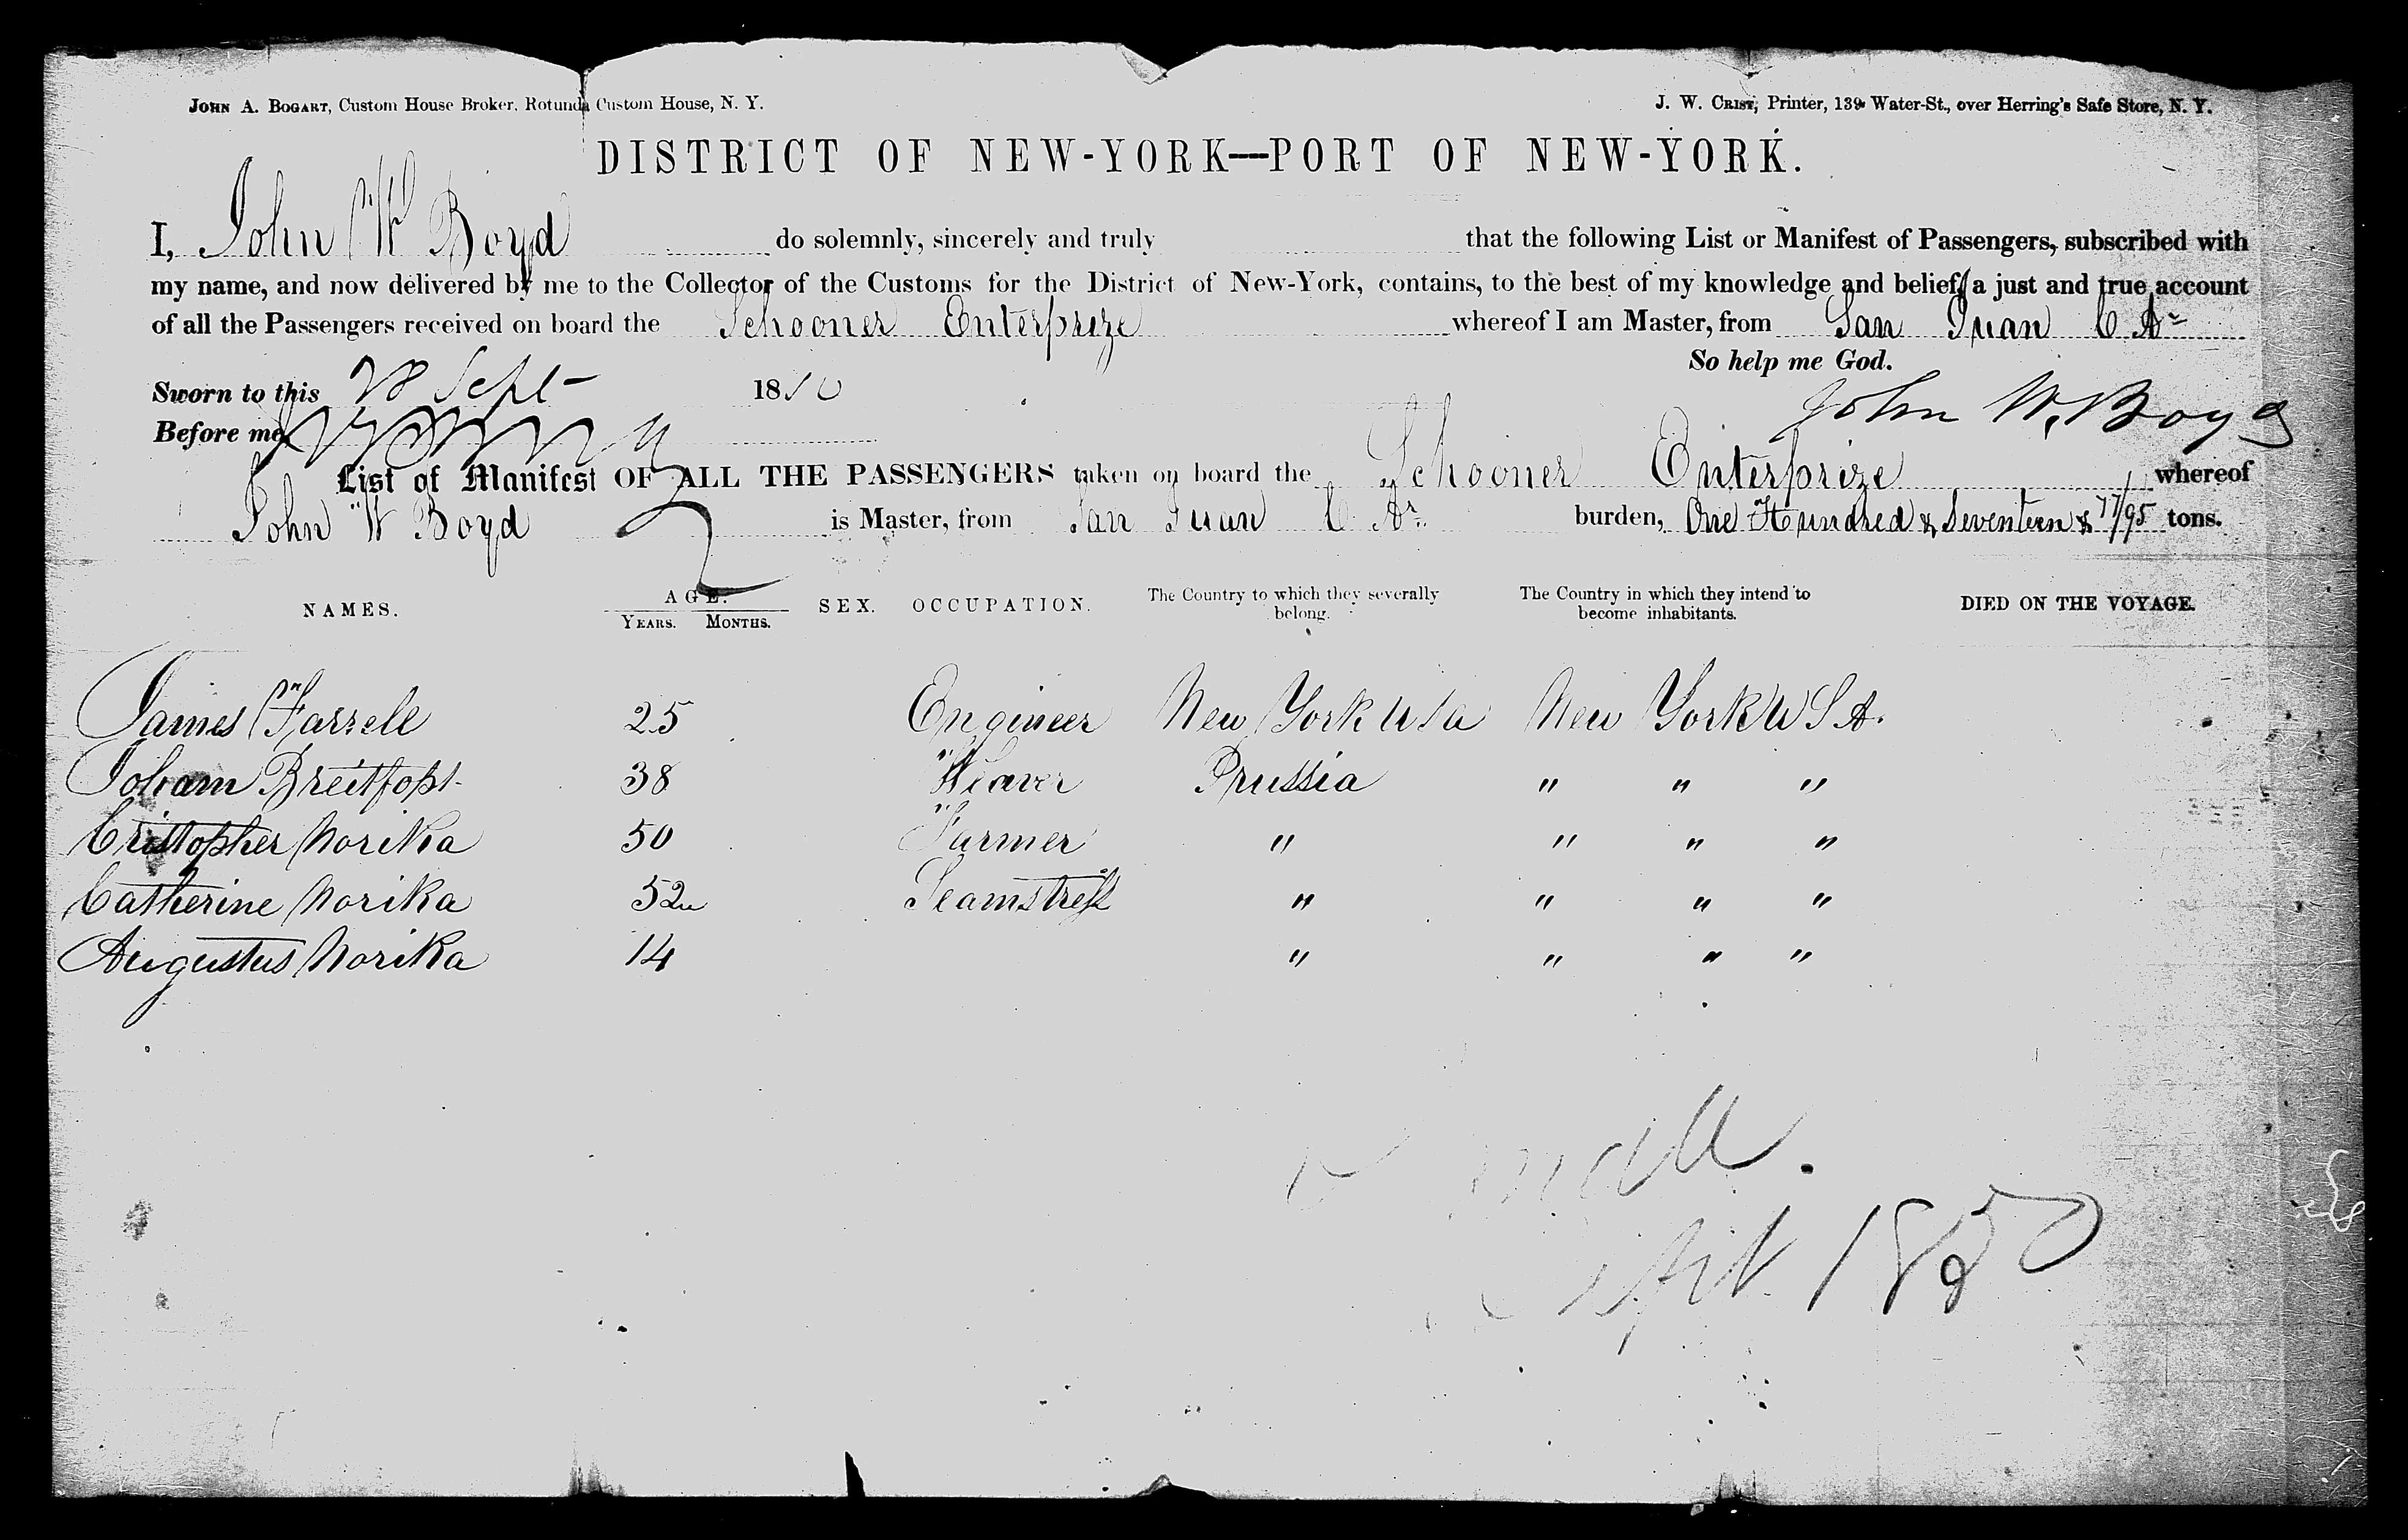 JOHN A. BOGART, Custom House Broker. Rotunda Custom House, N. Y. J. W. CRIST, Printer, 139 Water-St., over Herring's Safe Store, N. Y.
DISTRICT OF NEW-YORK—PORT OF NEW-YORK.
I, John W Boyd do solemnly, sincerely and truly that the following List or Manifest of Passengers, subscribed with
my name, and now delivered by me to the Collector of the Customs for the District of New-York, contains, to the best of my knowledge and belief, a just and true account
of all the Passengers received on board the Schooner Enterprize whereof I am Master, from San Juan C Ar
So help me God.
Sworn to this 28 Sept 1850
John W. Boyd
Before me
List of Manifest OF ALL THE PASSENGERS taken on board the Schooner Enterprize whereof
John W Boyd is Master, from San Juan C Ar. burden, One Hundred & Seventeen & 77/95 tons.
NAMES. AGE. SEX. OCCUPATION. The Country to which they severally belong. The Country in which they intend to become inhabitants. DIED ON THE VOYAGE.
YEARS. MONTHS.
James Farrell 25 Engineer New York U S a New York U S A.
Joham 38 Weaver Prussia " " "
Cristopher Norika 50 Farmer " " " "
Catherine Norika 52 Seamstress " " " "
Augustus Norika 14 " " " "
Sept 1850